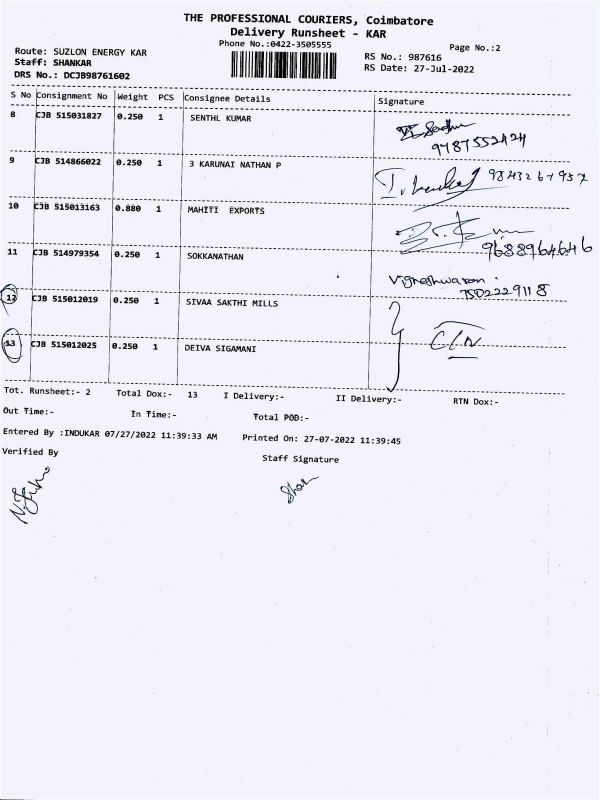 THE PROFESSIONAL COURIERS, Coimbatore
Delivery Runsheet - KAR
Phone No.:0422-3505555
Page No.:2
Route: SUZLON ENERGY KAR
RS No.: 987616
Staff: SHANKAR
RS Date: 27-Jul-2022
DRS No.: DCJB98761602
S No Consignment No Weight PCS Consignee Details Signature
8 CJB 515031827 0.250 1 SENTHL KUMAR
9787552424
9 CJB 514866022 0.250 1 3 KARUNAI NATHAN P
9843267957
10 CJB 515013163 0.880 1 MAHITI EXPORTS
9688964646
11 CJB 514979354 0.250 1 SOKKANATHAN
Vigneshwaran
7502229118
12 CJB 515012019 0.250 1 SIVAA SAKTHI MILLS
13 CJB 515012025 0.250 1 DEIVA SIGAMANI
Tot. Runsheet:- 2 Total Dox:- 13 I Delivery:- II Delivery:- RTN Dox:-
Out Time:- In Time:- Total POD:-
Entered By :INDUKAR 07/27/2022 11:39:33 AM Printed On: 27-07-2022 11:39:45
Verified By Staff Signature